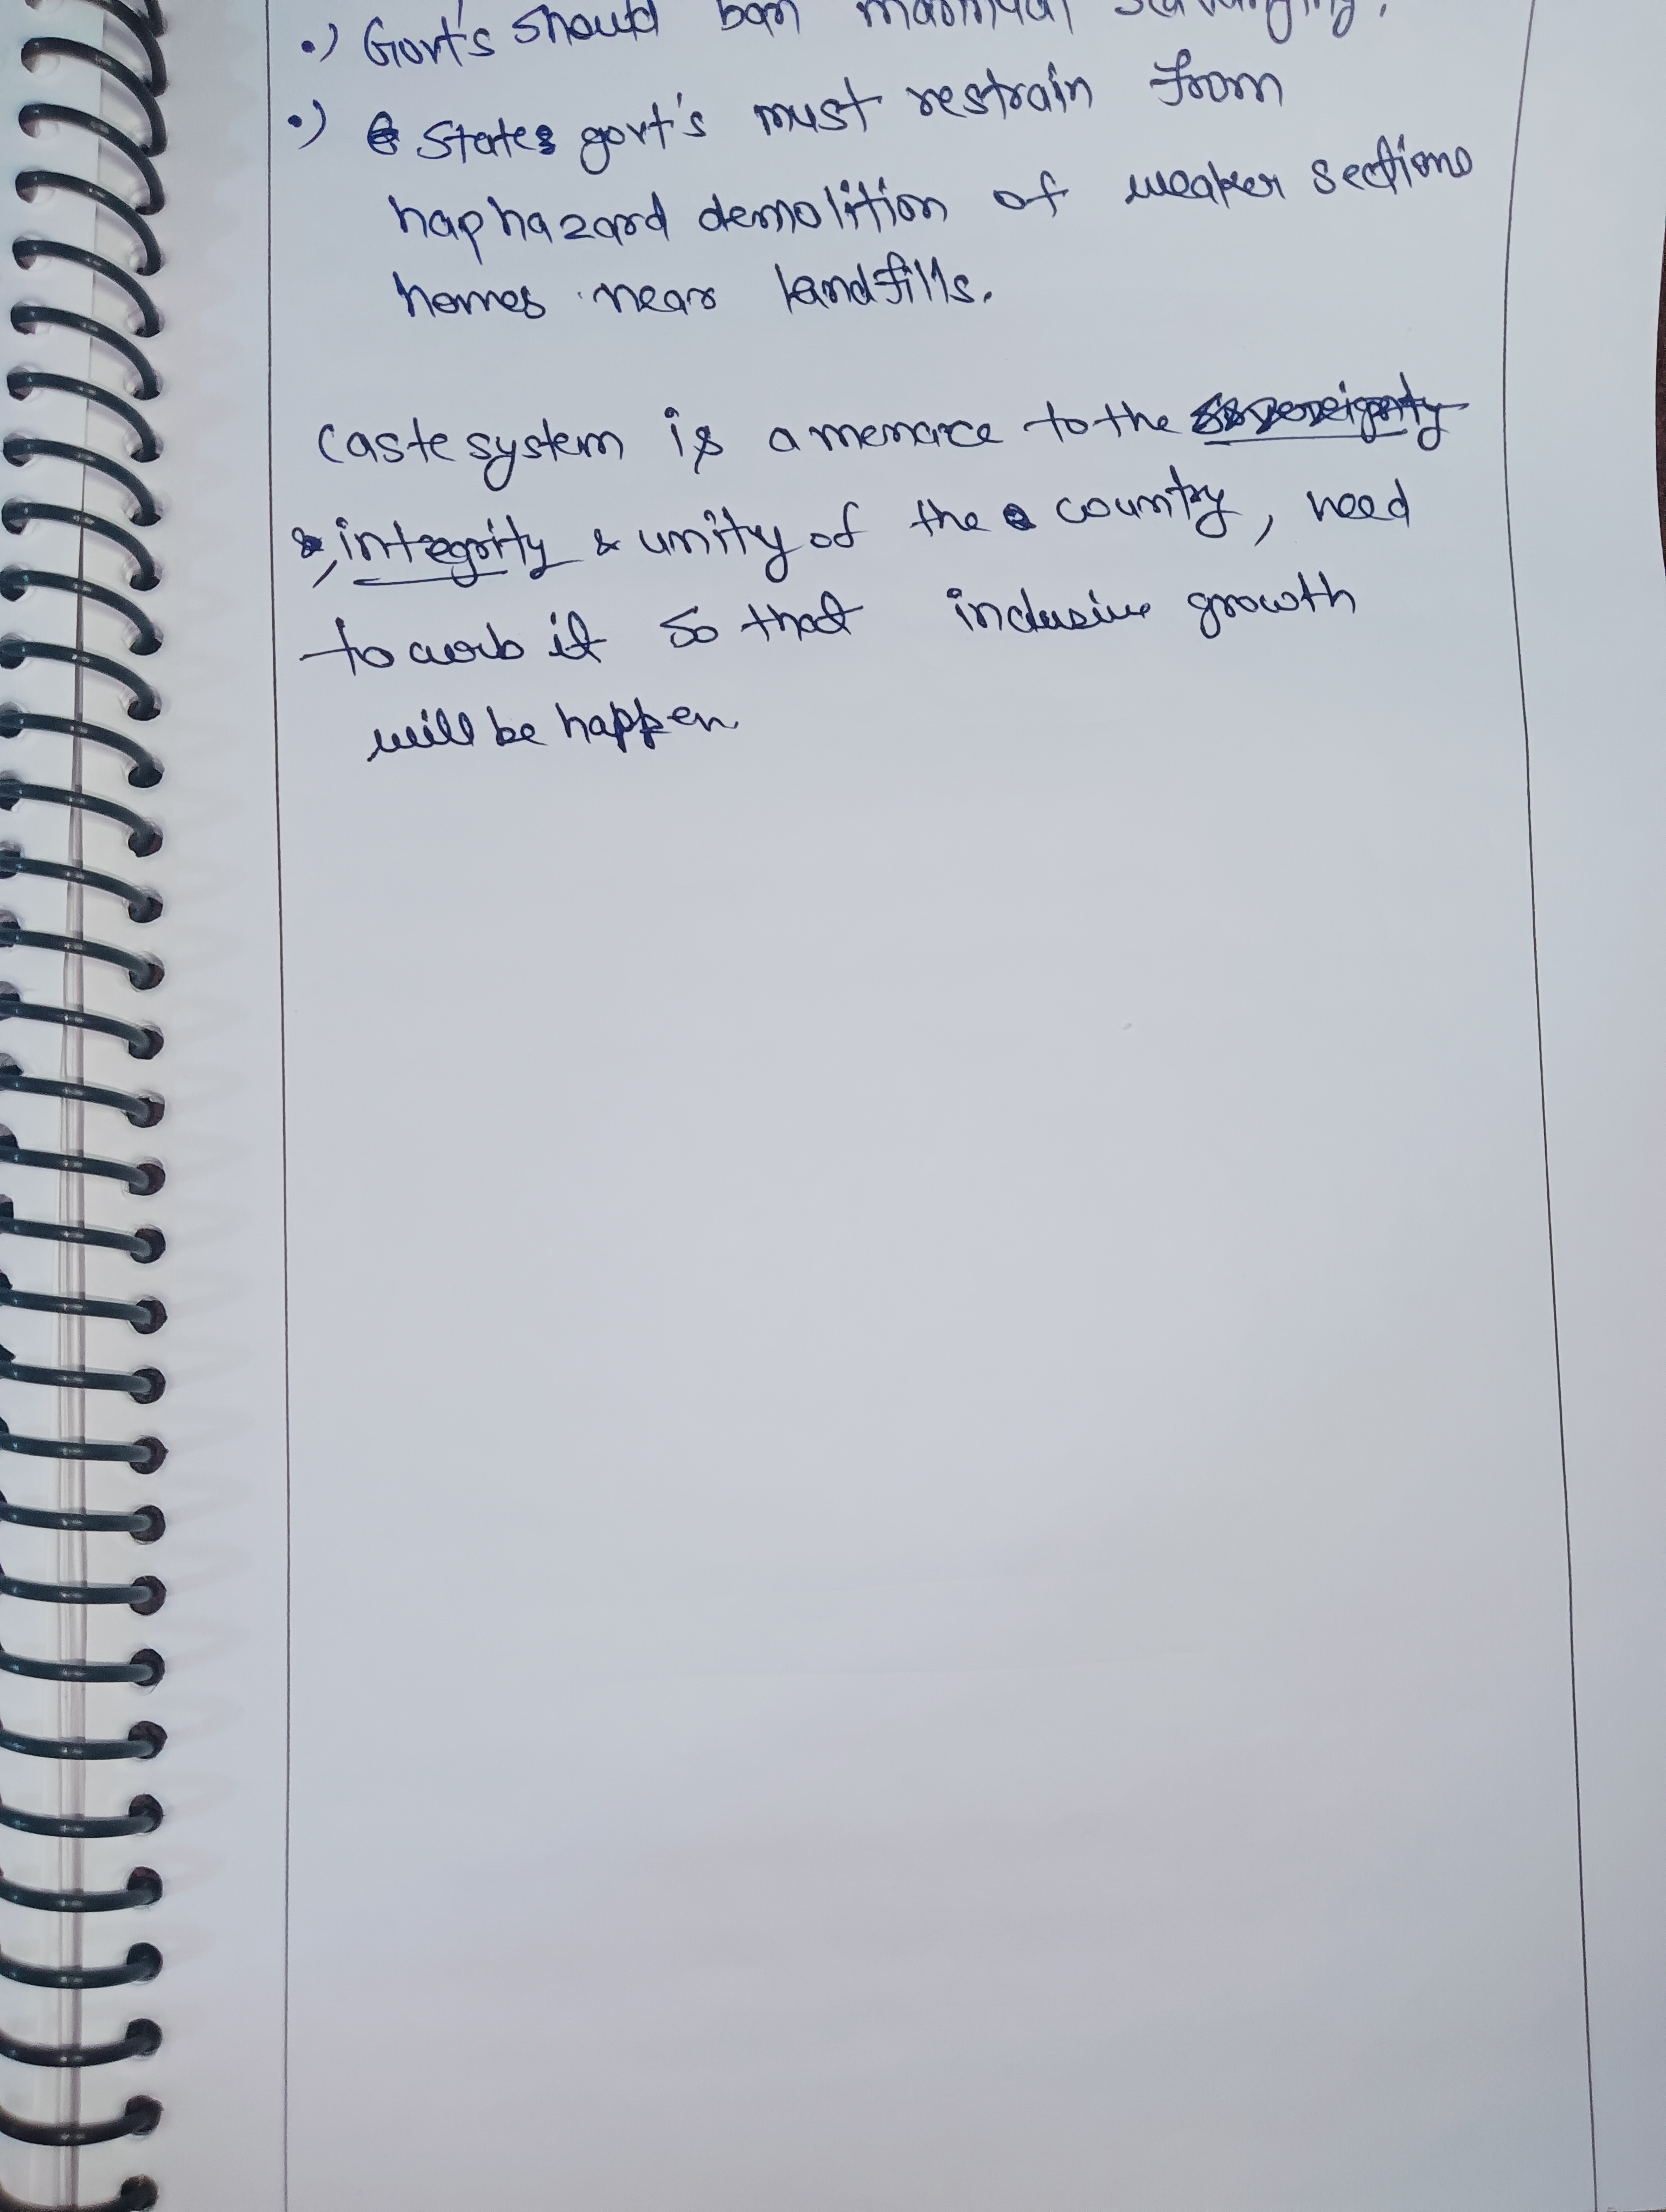 •) Govt's should ban manual scavenging.
•) States govt's must restrain from
haphazard demolition of weaker sections
homes near landfills.
caste system is a menace to the sovereignty
, integrity & unity of the country, need
to curb it so that inclusive growth
will be happen